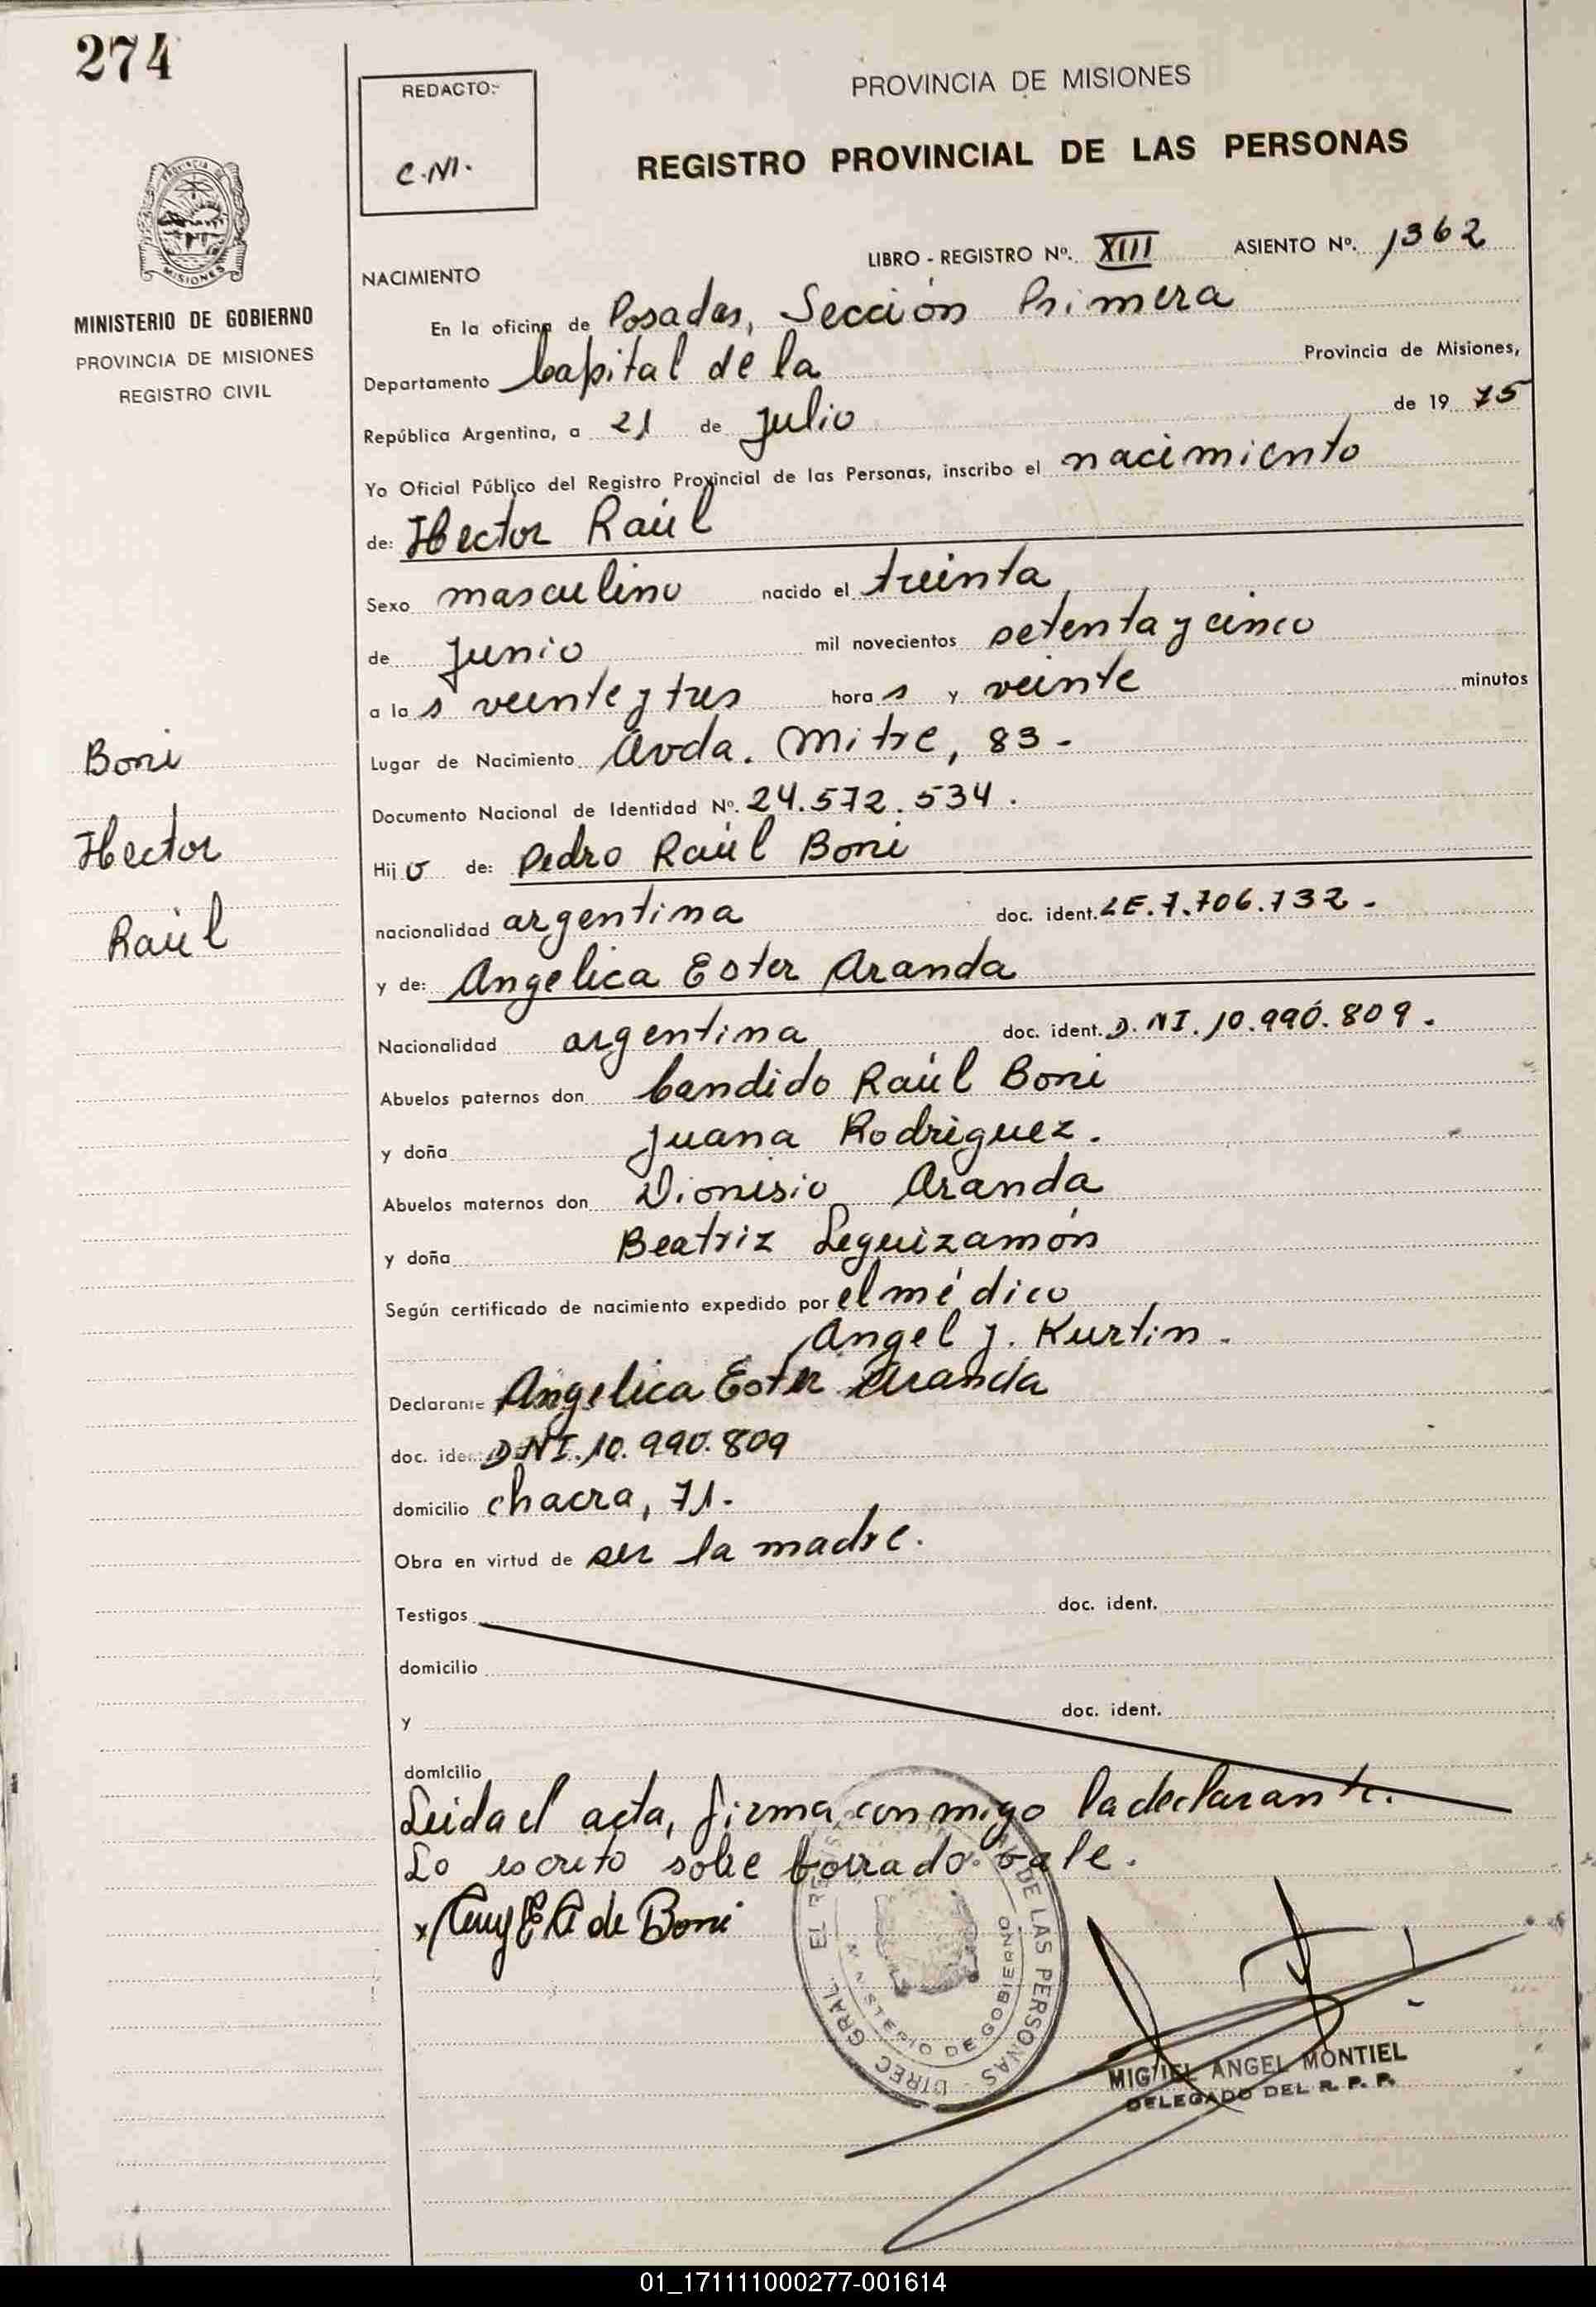 274
REDACTO:-
C.NI.
PROVINCIA DE MISIONES
REGISTRO PROVINCIAL DE LAS PERSONAS
MINISTERIO DE GOBIERNO
PROVINCIA DE MISIONES
REGISTRO CIVIL
LIBRO - REGISTRO Nº. XIII ASIENTO Nº. 1362
NACIMIENTO
En la oficina de Posadas, Sección Primera
Departamento Capital de la Provincia de Misiones,
República Argentina, a 21 de Julio de 19 75
Yo Oficial Público del Registro Provincial de las Personas, inscribo el nacimiento
de: Hector Raúl
Sexo masculino nacido el treinta
de Junio mil novecientos setenta y cinco
a la s veinte y tres hora s y veinte minutos
Lugar de Nacimiento Avda. Mitre, 83 -
Documento Nacional de Identidad Nº. 24.572.534.
Hij o de: Pedro Raúl Boni
nacionalidad argentina doc. ident. LE. 7.706.732 -
y de: Angelica Ester Aranda
Nacionalidad argentina doc. ident. D.NI. 10.990.809.
Abuelos paternos don Candido Raúl Boni
y doña Juana Rodriguez.
Abuelos maternos don Dionisio Aranda
y doña Beatriz Leguizamón
Según certificado de nacimiento expedido por el médico
Angel J. Kurtin -
Declarante Angelica Ester Aranda
doc. ident. D.NI. 10.990.809
domicilio chacra, 71.-
Obra en virtud de ser la madre.
Testigos doc. ident.
domicilio
y doc. ident.
domicilio
Leida el acta, firma conmigo la declarante.
Lo escrito sobre borrado vale.
de Boni
Boni
Hector
Raúl
MINISTERIO DE GOBIERNO
DE LAS PERSONAS - DIREC GRAL.
MIGUEL ANGEL MONTIEL
DELEGADO DEL R. P. P.
01_171111000277-001614